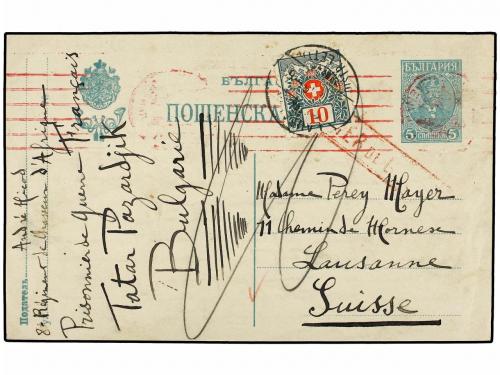 БЪЛГА
ПОЩЕНСКА
БЪЛГАРИЯ
5 5
10
Податель
André
8e Régiment de Chasseurs d'Afrique
Prisonnier de Guerre Français
Tatar Pazardjik
Bulgarie
Madame Perey Mayer
11 Chemin de Mornex
Lausanne
Suisse